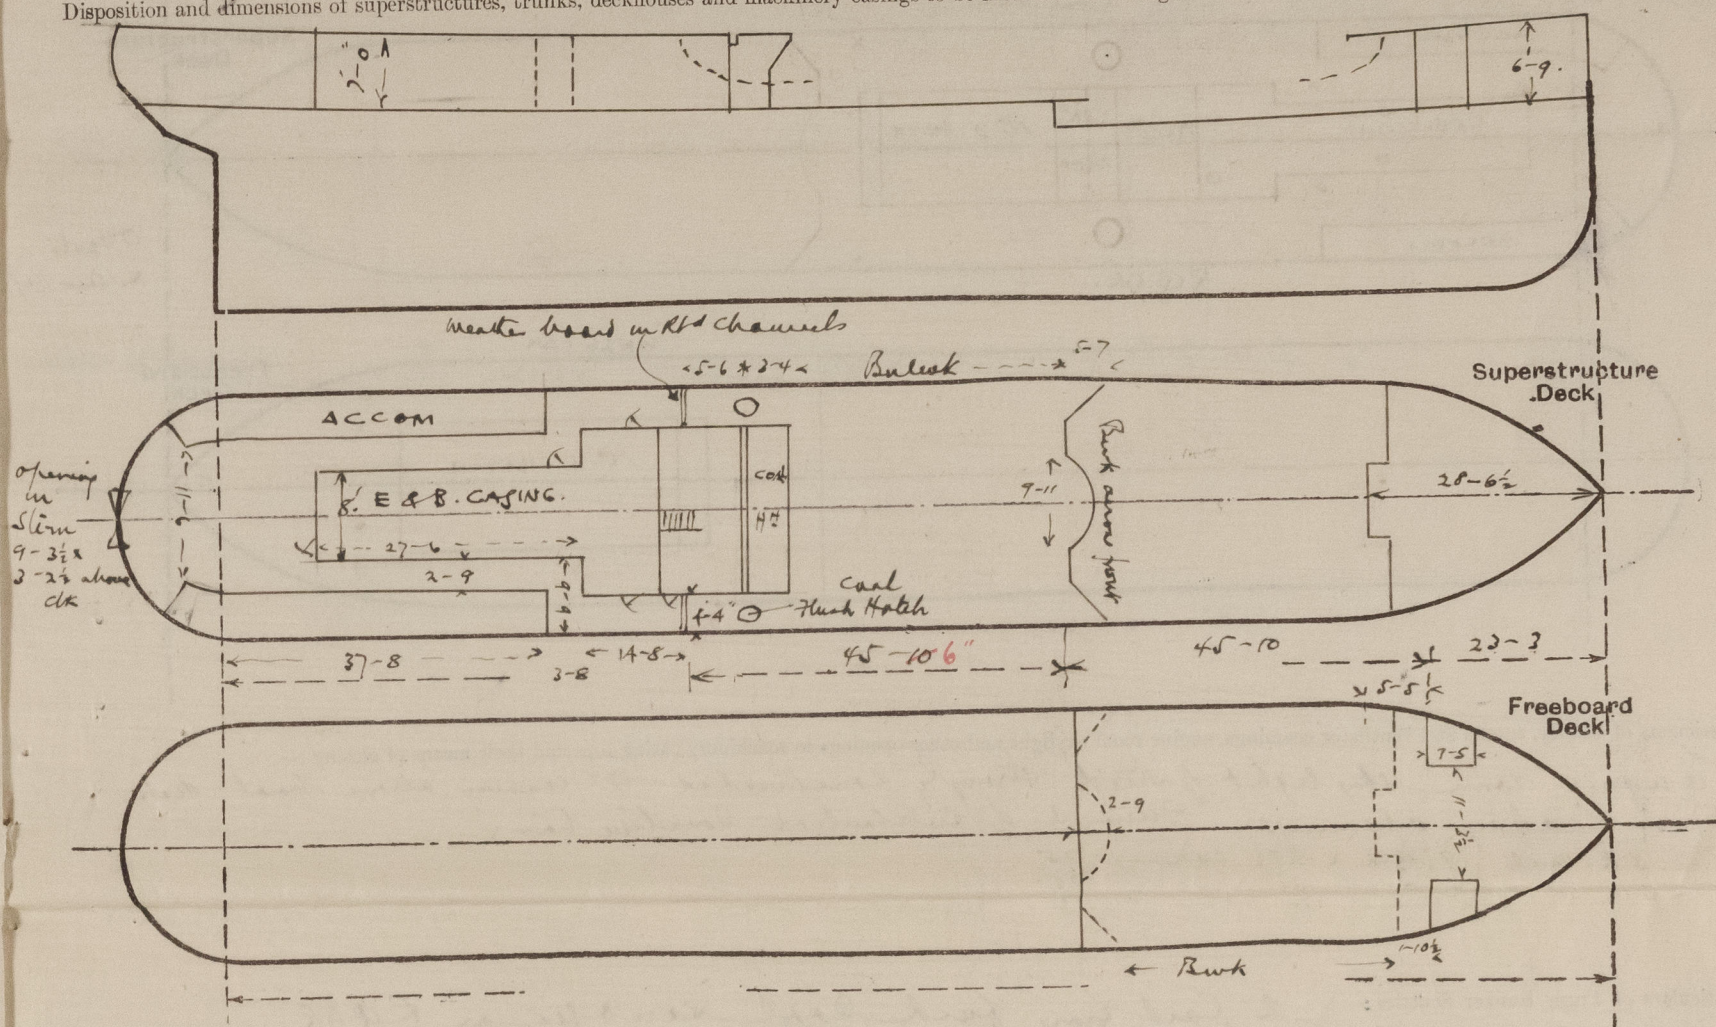 Disposition and dimensions of superstructures, trunks, deckhouses and machinery casings to be
7'-0"
6-9.
Weather board in Rtd Channels
5-6 * 3-4
Bulwk
5-7
Superstructure
Deck
ACCOM
opening
in
Stern
9-3½ x
3-2½ above
dk
9-11
8'
E & B. CASING.
27-6
2-9
9-9
COAL
HH
4-4"
Coal
Flush Hatch
9-11
Bwk across front
28-6½
37-8
3-8
14-8
45-10 6"
45-10
23-3
5-5½
Freeboard
Deck
7-5
11-3½
2-9
1-10½
Bwk